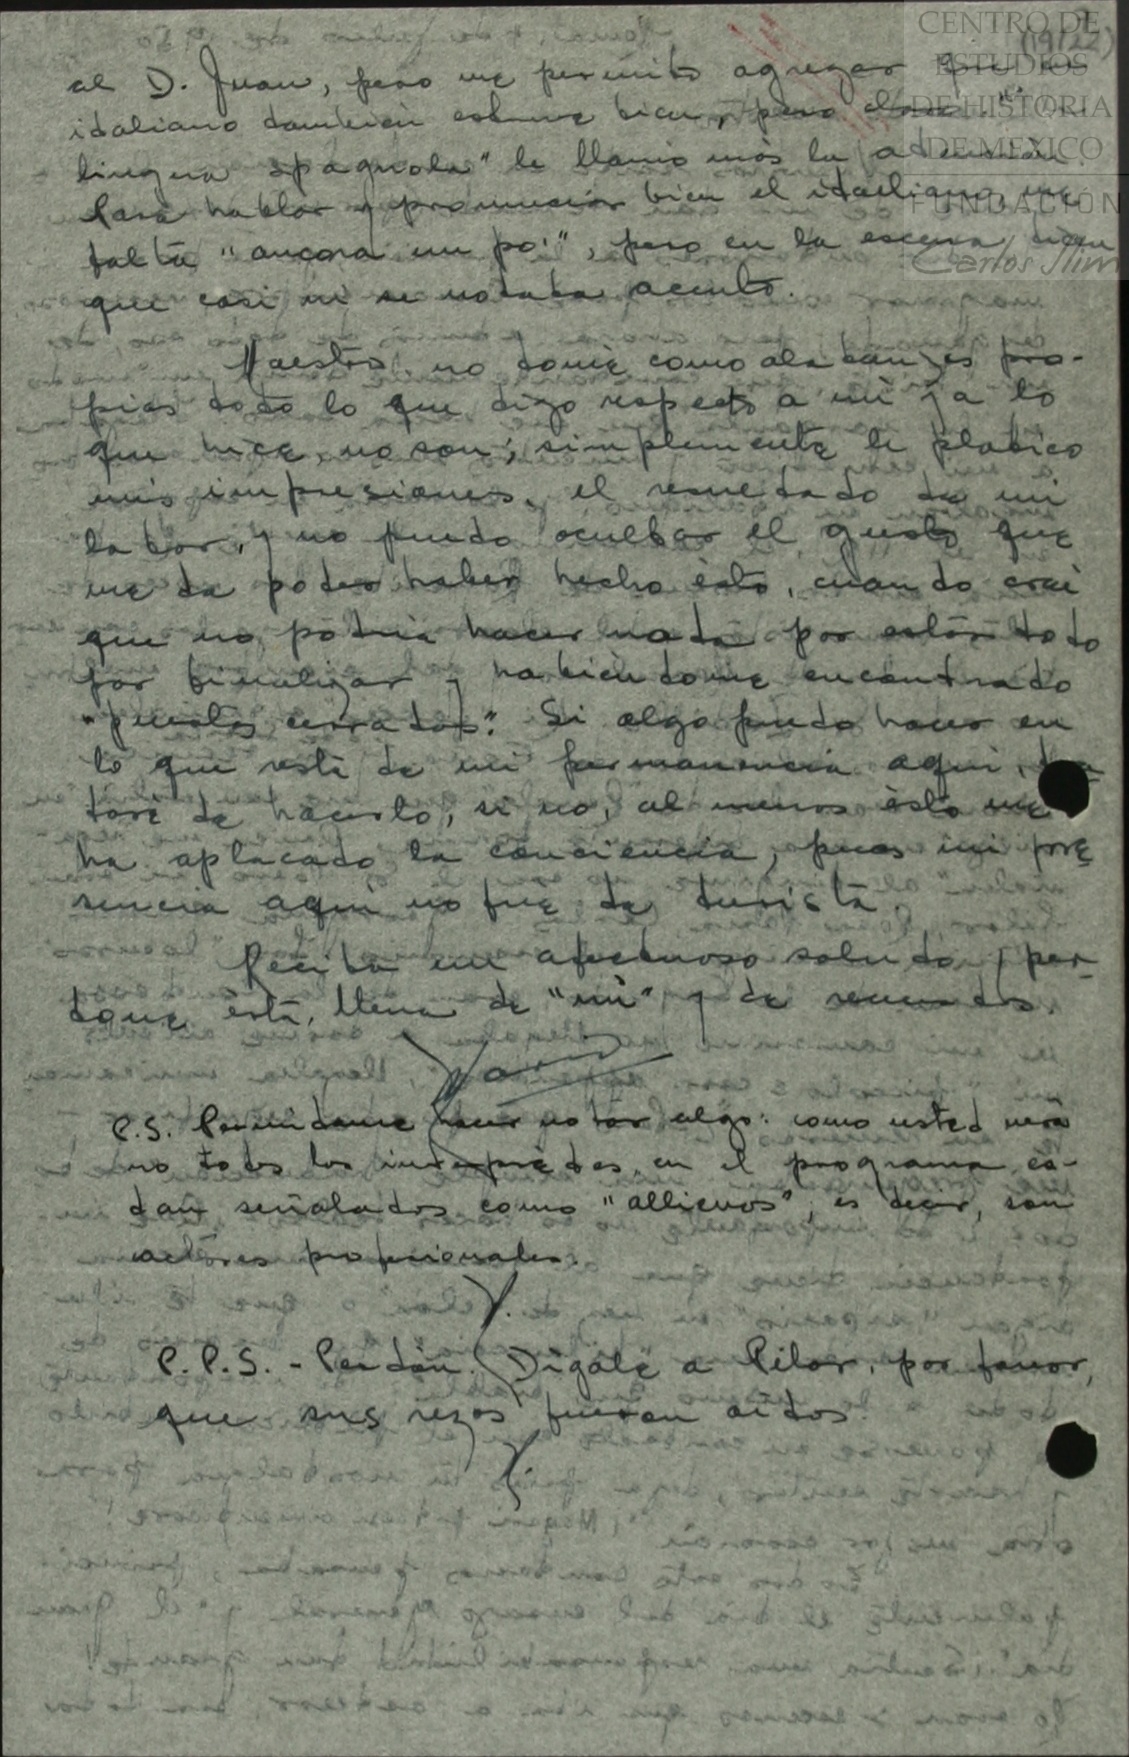 CENTRO DE
ESTUDIOS
DE HISTORIA
DE MEXICO
FUNDACIÓN
Carlos Slim
(19122)
al D. Juan, pero me permito agregar que en
italiano también estuve bien, pero claro "la
lingua spagnola" le llamó más la atención.
Para hablar y pronunciar bien el italiano, me
falta "ancora un po'", pero en la escena, creen
que casi ni se notaba acento.
Maestro, no tome como alabanzas pro-
pias todo lo que digo respecto a mí y a lo
que hice, no son; simplemente le platico
mis impresiones, el resultado de mi
labor, y no puedo ocultar el gusto que
me da poder haber hecho ésto, cuando creí
que no podría hacer nada por estar todo
por finalizar y habiéndome encontrado
"puertas cerradas". Si algo puedo hacer en
lo que resta de mi permanencia aquí, tra-
taré de hacerlo, si no, al menos ésto me
ha aplacado la conciencia, pues mi pre
sencia aquí no fue de turista.
Reciba un afectuoso saludo y per-
done ésta, llena de "mí" y de recuerdos.
P.S. Permítame hacer notar algo: como usted verá
no todos los intérpretes en el programa es-
tán señalados como "allievos", es decir, son
actores profesionales.
Y.
P.P.S. - Perdón. Dígale a Pilar, por favor,
que sus rezos fueron oídos.
Y.